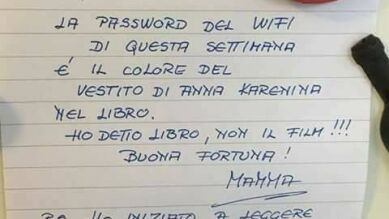 LA PASSWORD DEL WIFI
DI QUESTA SETTIMANA
É IL COLORE DEL
VESTITO DI ANNA KARENINA
NEL LIBRO.
HO DETTO LIBRO, NON IL FILM!!!
BUONA FORTUNA!
MAMMA
HO INIZIATO A LEGGERE